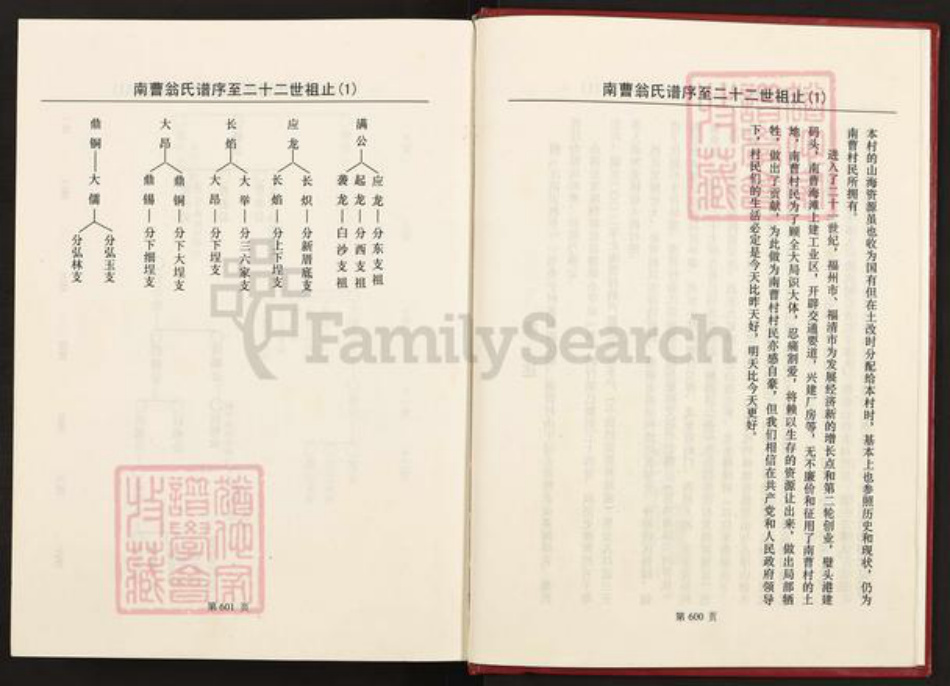 南曹翁氏谱序至二十二世祖止(1)
本村的山海资源虽也收为国有但在土改时分配给本村时，基本上也参照历史和现状，仍为
南曹村民所拥有。
进入了二十一世纪，福州市、福清市为发展经济新的增长点和第二轮创业，壁头港建
码头，南曹海滩上建工业区，开辟交通要道，兴建厂房等，无不廉价和征用了南曹村的土
地，南曹村民为了顾全大局识大体，忍痛割爱，将赖以生存的资源让出来，做出局部牺
牲，做出了贡献，为此做为南曹村村民亦感自豪，但我们相信在共产党和人民政府领导
下，村民们的生活必定是今天比昨天好，明天比今天更好。
第 600 页
南曹翁氏谱序至二十二世祖止(1)
满公
应龙—分东支祖
起龙—分西支祖
袭龙—白沙支祖
应龙
长炽—分新厝底支
长焰—分上下埕支
长焰
大举—分三六家支
大昂—分下埕支
大昂
鼎铜—分下大埕支
鼎锡—分下细埕支
鼎铜—大儒
分弘玉支
分弘林支
第 601 页
FamilySearch